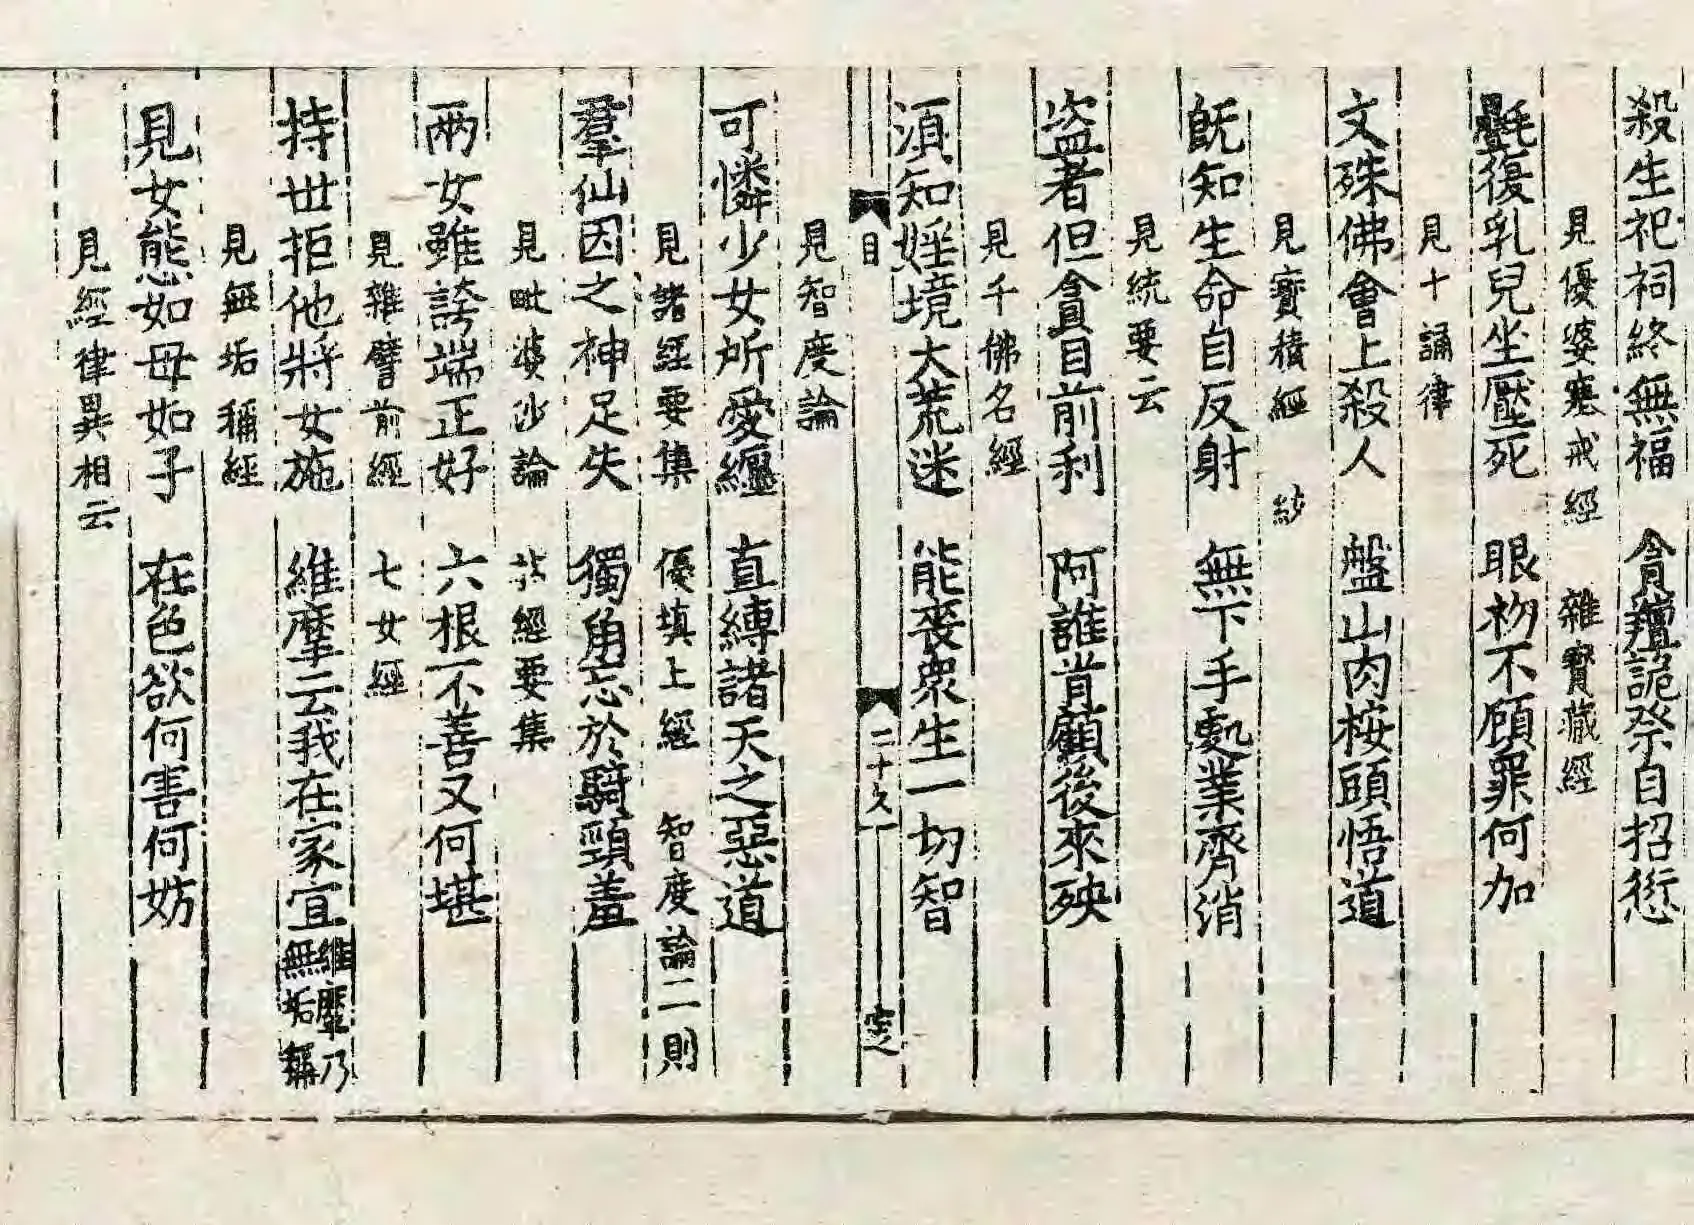 殺生祀祠終無福　貪羶詭祭自招愆
見優婆塞戒經　雜寶藏經
氎復乳兒坐壓死　眼粉不顧罪何加
見十誦律
文殊佛會上殺人　盤山肉桉頭悟道
見寶積經
既知生命自反射　無下手處業齊消
見統要云
盗者但貪目前利　阿誰肯顧後來殃
見千佛名經
須知婬境大荒迷　能喪衆生一切智
目　二十久　定
見智度論
可憐少女所愛纏　直縛諸天之惡道
見諸經要集　優填上經　智度論二則
羣仙因之神足失　獨角忘於騎頸羞
見毗婆沙論　諸經要集
兩女雖誇端正好　六根不善又何堪
見雜譬前經　七女經
持世拒他將女施　維摩云我在家宜維摩乃無垢稱
見無垢稱經
見女態如母如子　在色欲何害何妨
見經律異相云